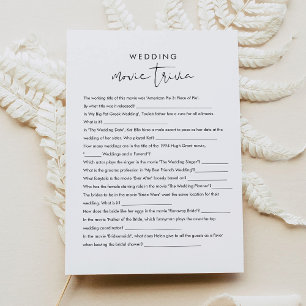 WEDDING
movie trivia
The working title of this movie was 'American Pie 3: Piece of Pie'.
By what title was it released?
In 'My Big Fat Greek Wedding', Toula's father has a cure for all ailments.
What is it?
In 'The Wedding Date', Kat Ellis hires a male escort to pose as her date at the
wedding of her sister. Who played Kat?
How many weddings are in the title of the 1994 Hugh Grant movie,
Weddings and a Funeral'?
Which actor plays the singer in 'The Wedding Singer'?
What is the groom's profession in 'My Best Friend's Wedding'?
What fairytale is the movie 'Ever After' loosely based on?
Who has the female starring role in the movie 'The Wedding Planner'?
The brides to be in the movie 'Bride Wars' want the same location for their
wedding. What is it?
How does the bride like her eggs in the movie 'Runaway Bride'?
In the movie 'Father of the Bride', which funnyman plays the wedding
coordinator?
In the movie 'Bridesmaids', what does Helen give to all the guests as a favor
when leaving the bridal shower?